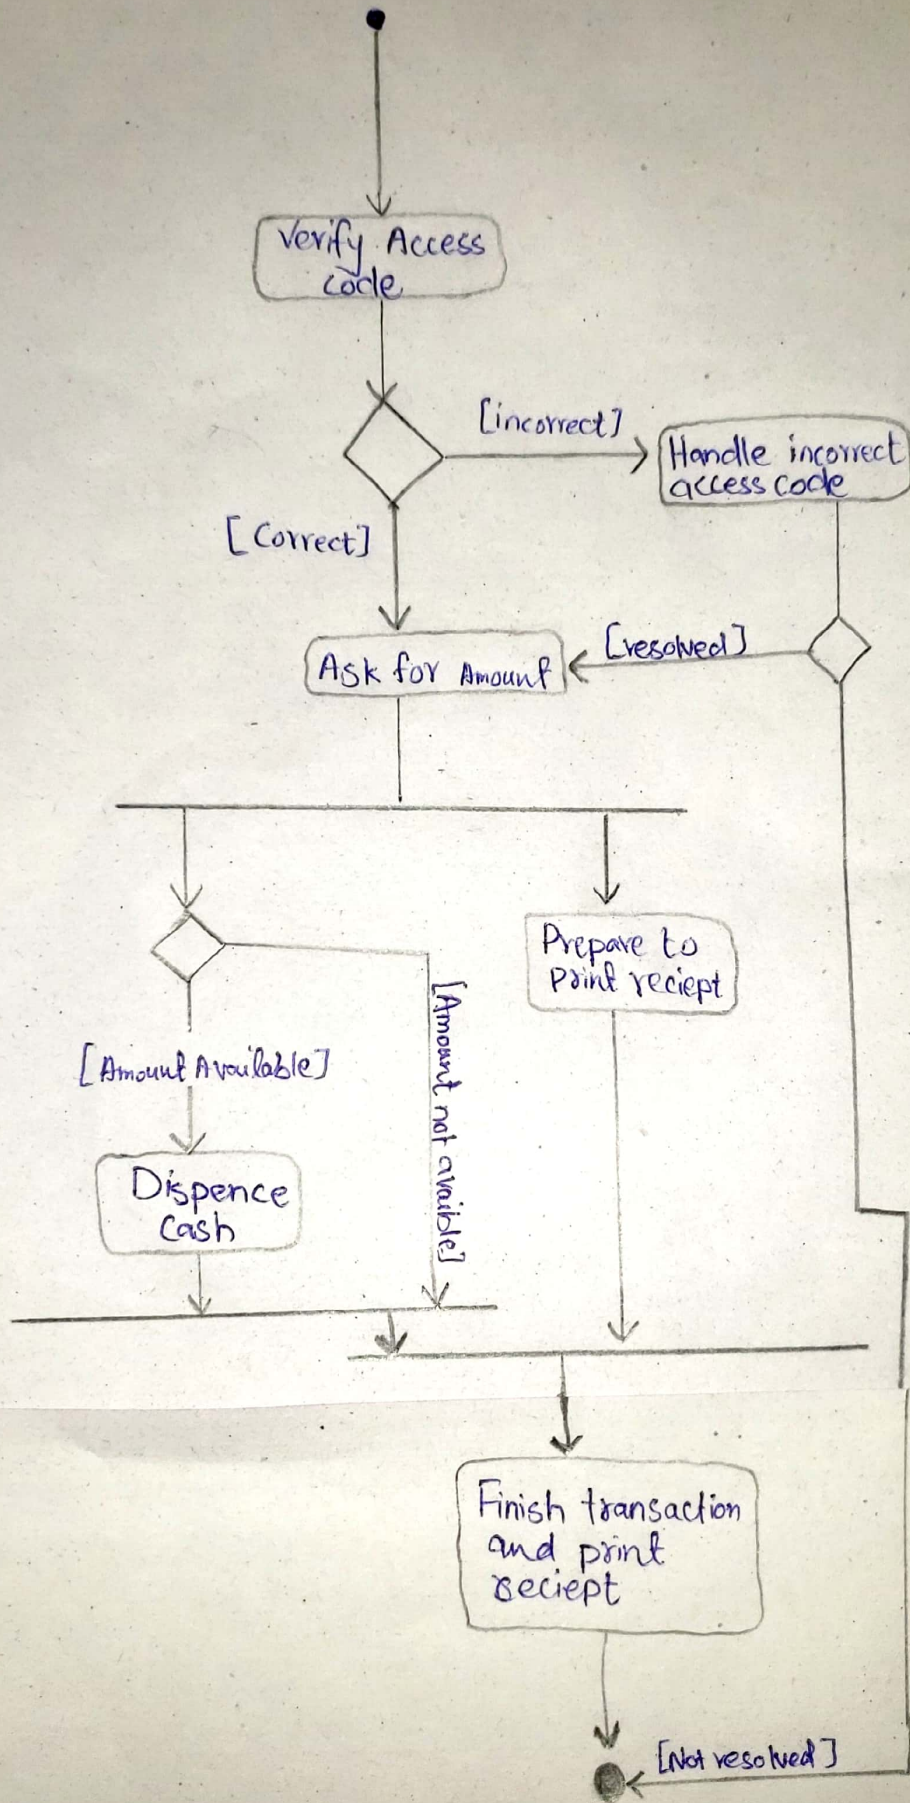 Verify Access
code
[incorrect]
Handle incorrect
access code
[Correct]
[resolved]
Ask for Amount
Prepare to
print reciept
[Amount Available]
[Amount not avaible]
Dispence
cash
Finish transaction
and print
reciept
[Not resolved]